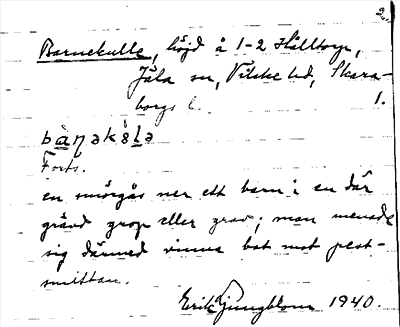 2.
Barnekulle, höjd å 1-2 Hålltorp,
Jäla sn, Vilske hd, Skara-
borgs l. 1.
Forts.
en smörgås ner ett barn i en där
grävd grop eller grav; man menade
sig därmed vinna bot mot pest-
smittan.
Erik Ljungblom 1940.